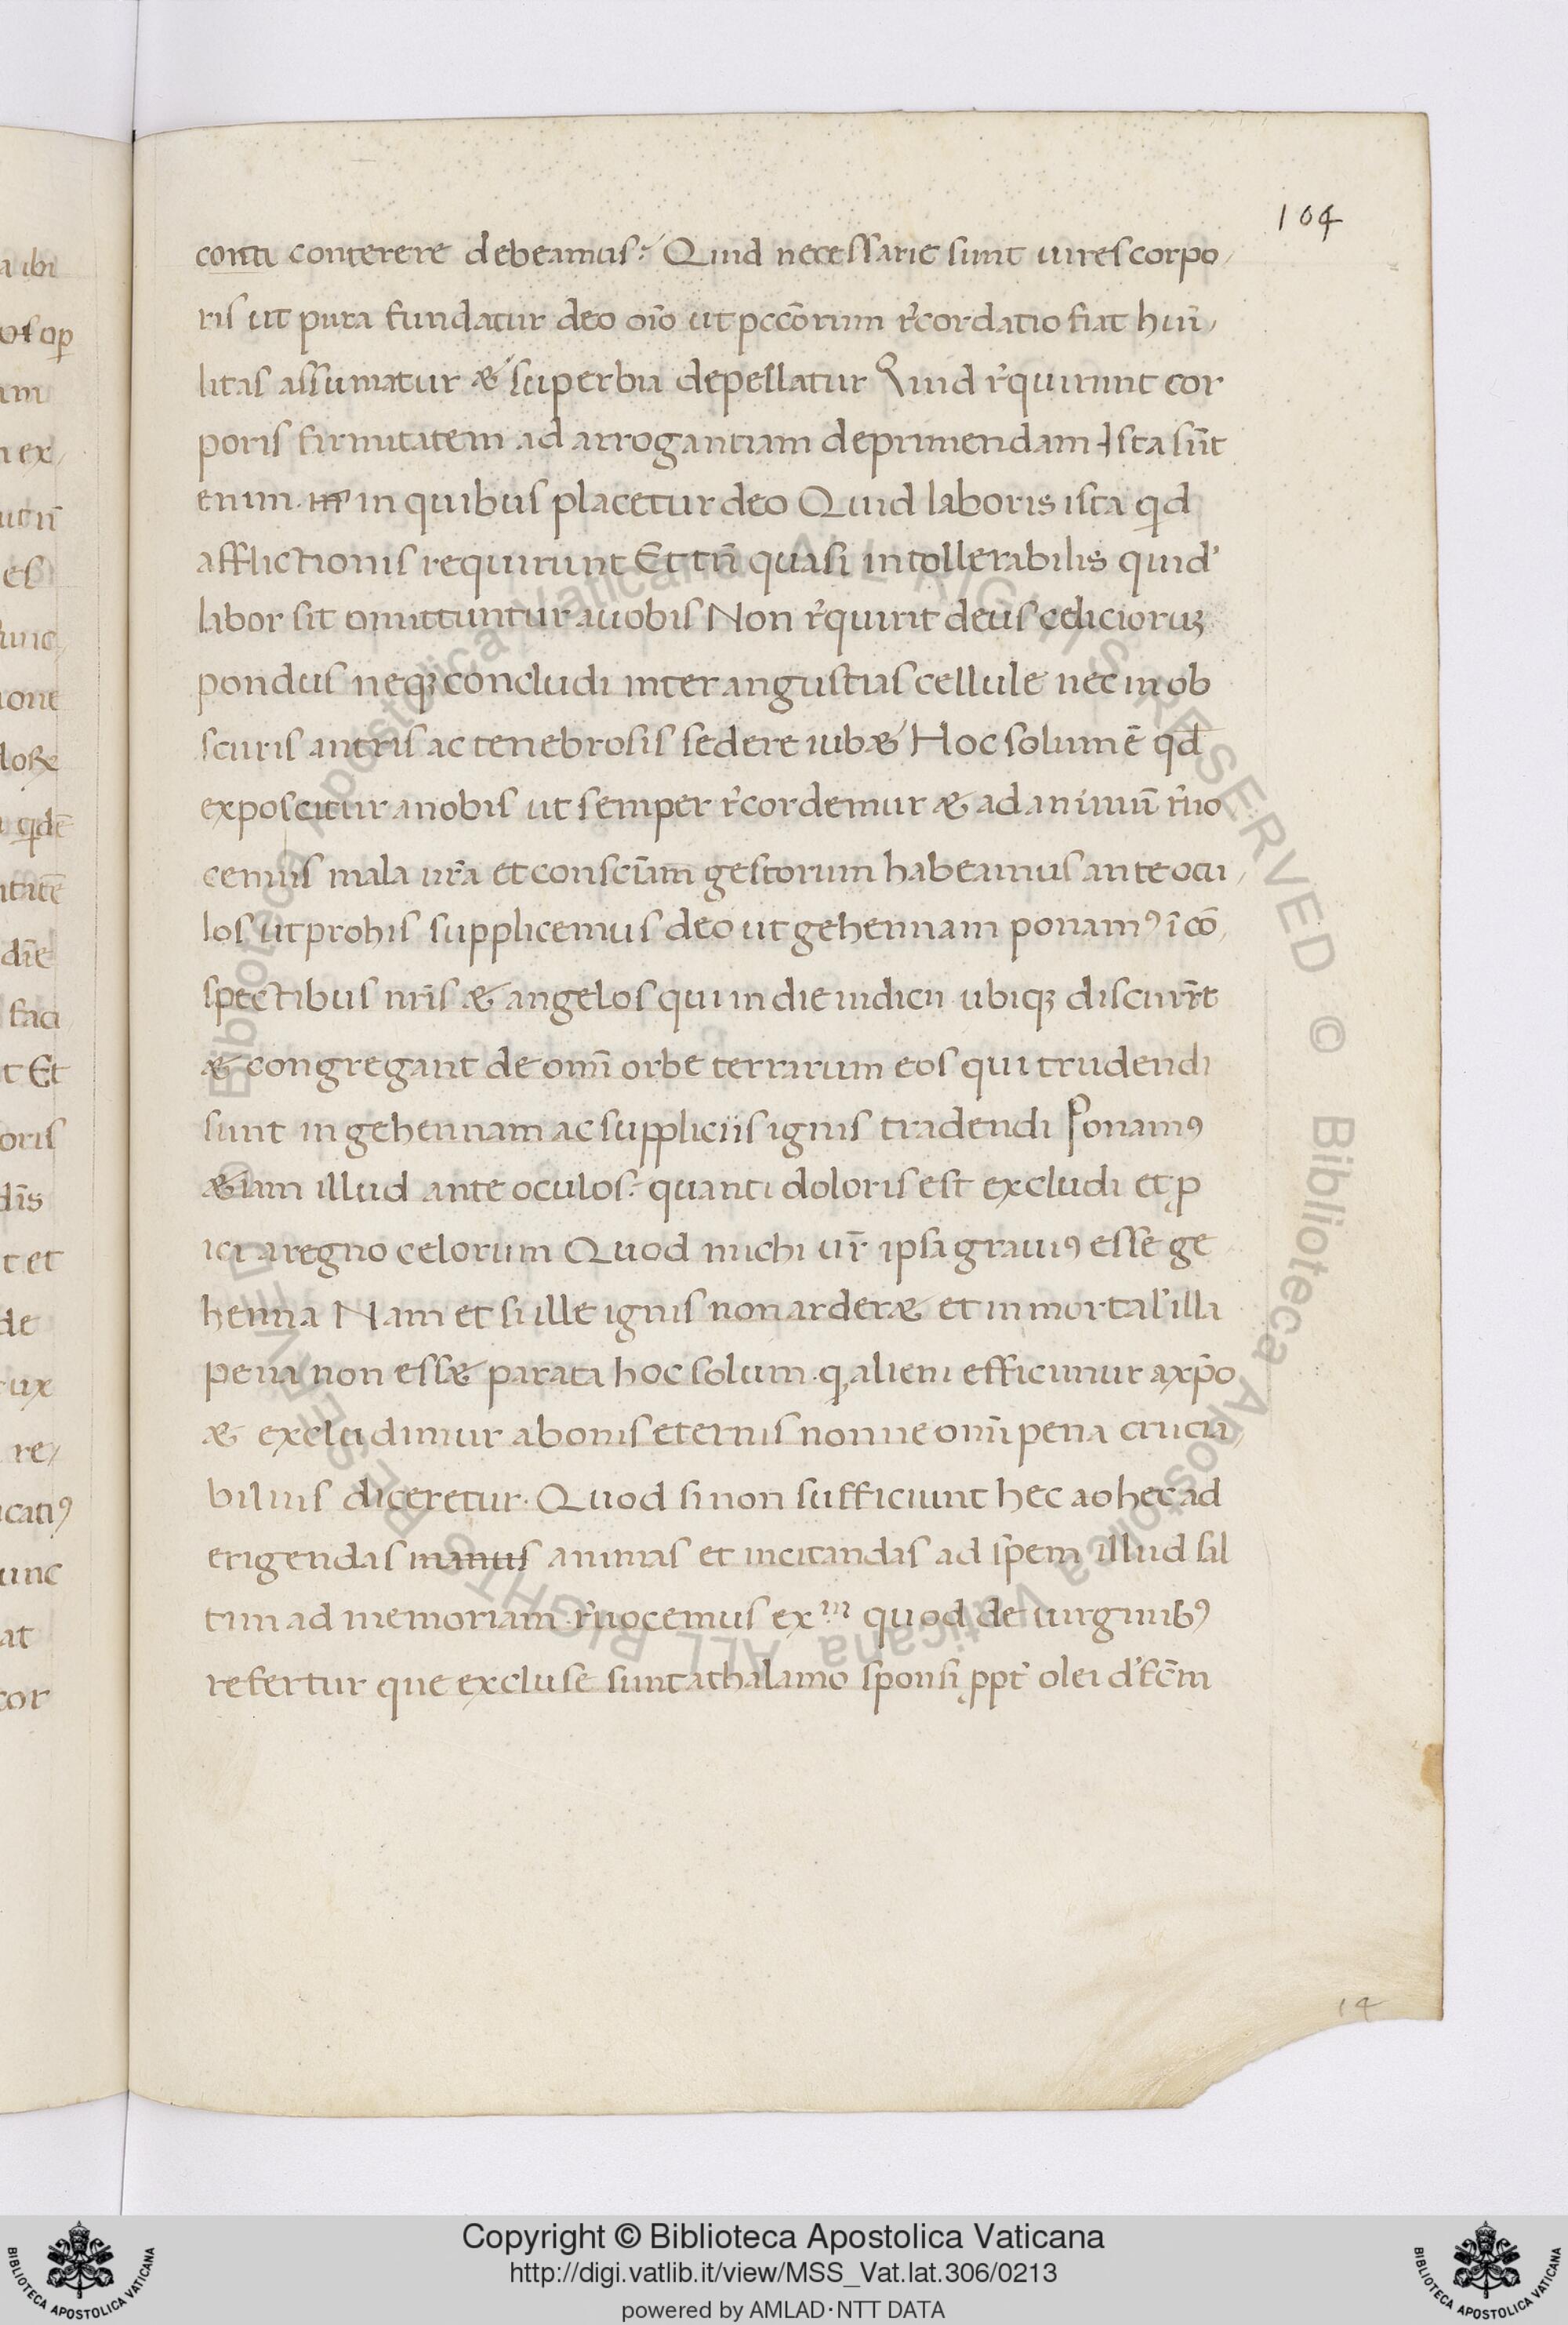 104
conti conterere debeamus? Quid necessarie sunt uires corpo/
ris ut pura fundatur deo or̄o ut pcc̄orum r̄cordatio fiat hūi/
litas assumatur & superbia depellatur Quid r̄quirunt cor
poris firmitatem ad arrogantiam deprimendam Ista sūt
enim. in quibus placetur deo Quid laboris ista qd
afflictionis requirunt Et tn̄ quasi intollerabilis quid'
labor sit omittuntur a uobis Non r̄quirit deus ciliciorum
pondus neq; concludi inter angustias cellule nec in ob
scuris antris ac tenebrosis sedere iub& Hoc solum ē qd̄
exposcitur a nobis ut semper r̄cordemur & ad animū r̄uo
cemus mala nr̄a et consciām gestorum habeamus ante ocu/
los ut pro his supplicemus deo ut gehennam ponam⁹ ī cō/
spectibus nr̄is & angelos qui in die iudicii ubiq; discurr̄t
& congregant de omī orbe terrarum eos qui trudendi
sunt in gehennam ac suppliciis ignis tradendi Ponam⁹
&iam illud ante oculos? quanti doloris est excludi et p
ici a regno celorum Quod michi ur̄ ipsa graui⁹ esse ge
henna Nam et si ille ignis non arder& et inmortal' illa
pena non ess& parata hoc solum. q alieni efficimur a xp̄o
& excludimur a bonis eternis nonne omī pena crucia/
bilius diceretur. Quod si non sufficiunt hec ao hec ad
erigendas manus animas et incitandas ad spem illud sal
tim ad memoriam r̄uocemus exm quod de uirginib⁹
refertur que excluse sunt a thalamo sponsi ppt' olei d'fc̄m
14
Copyright © Biblioteca Apostolica Vaticana
http://digi.vatlib.it/view/MSS_Vat.lat.306/0213
powered by AMLAD·NTT DATA